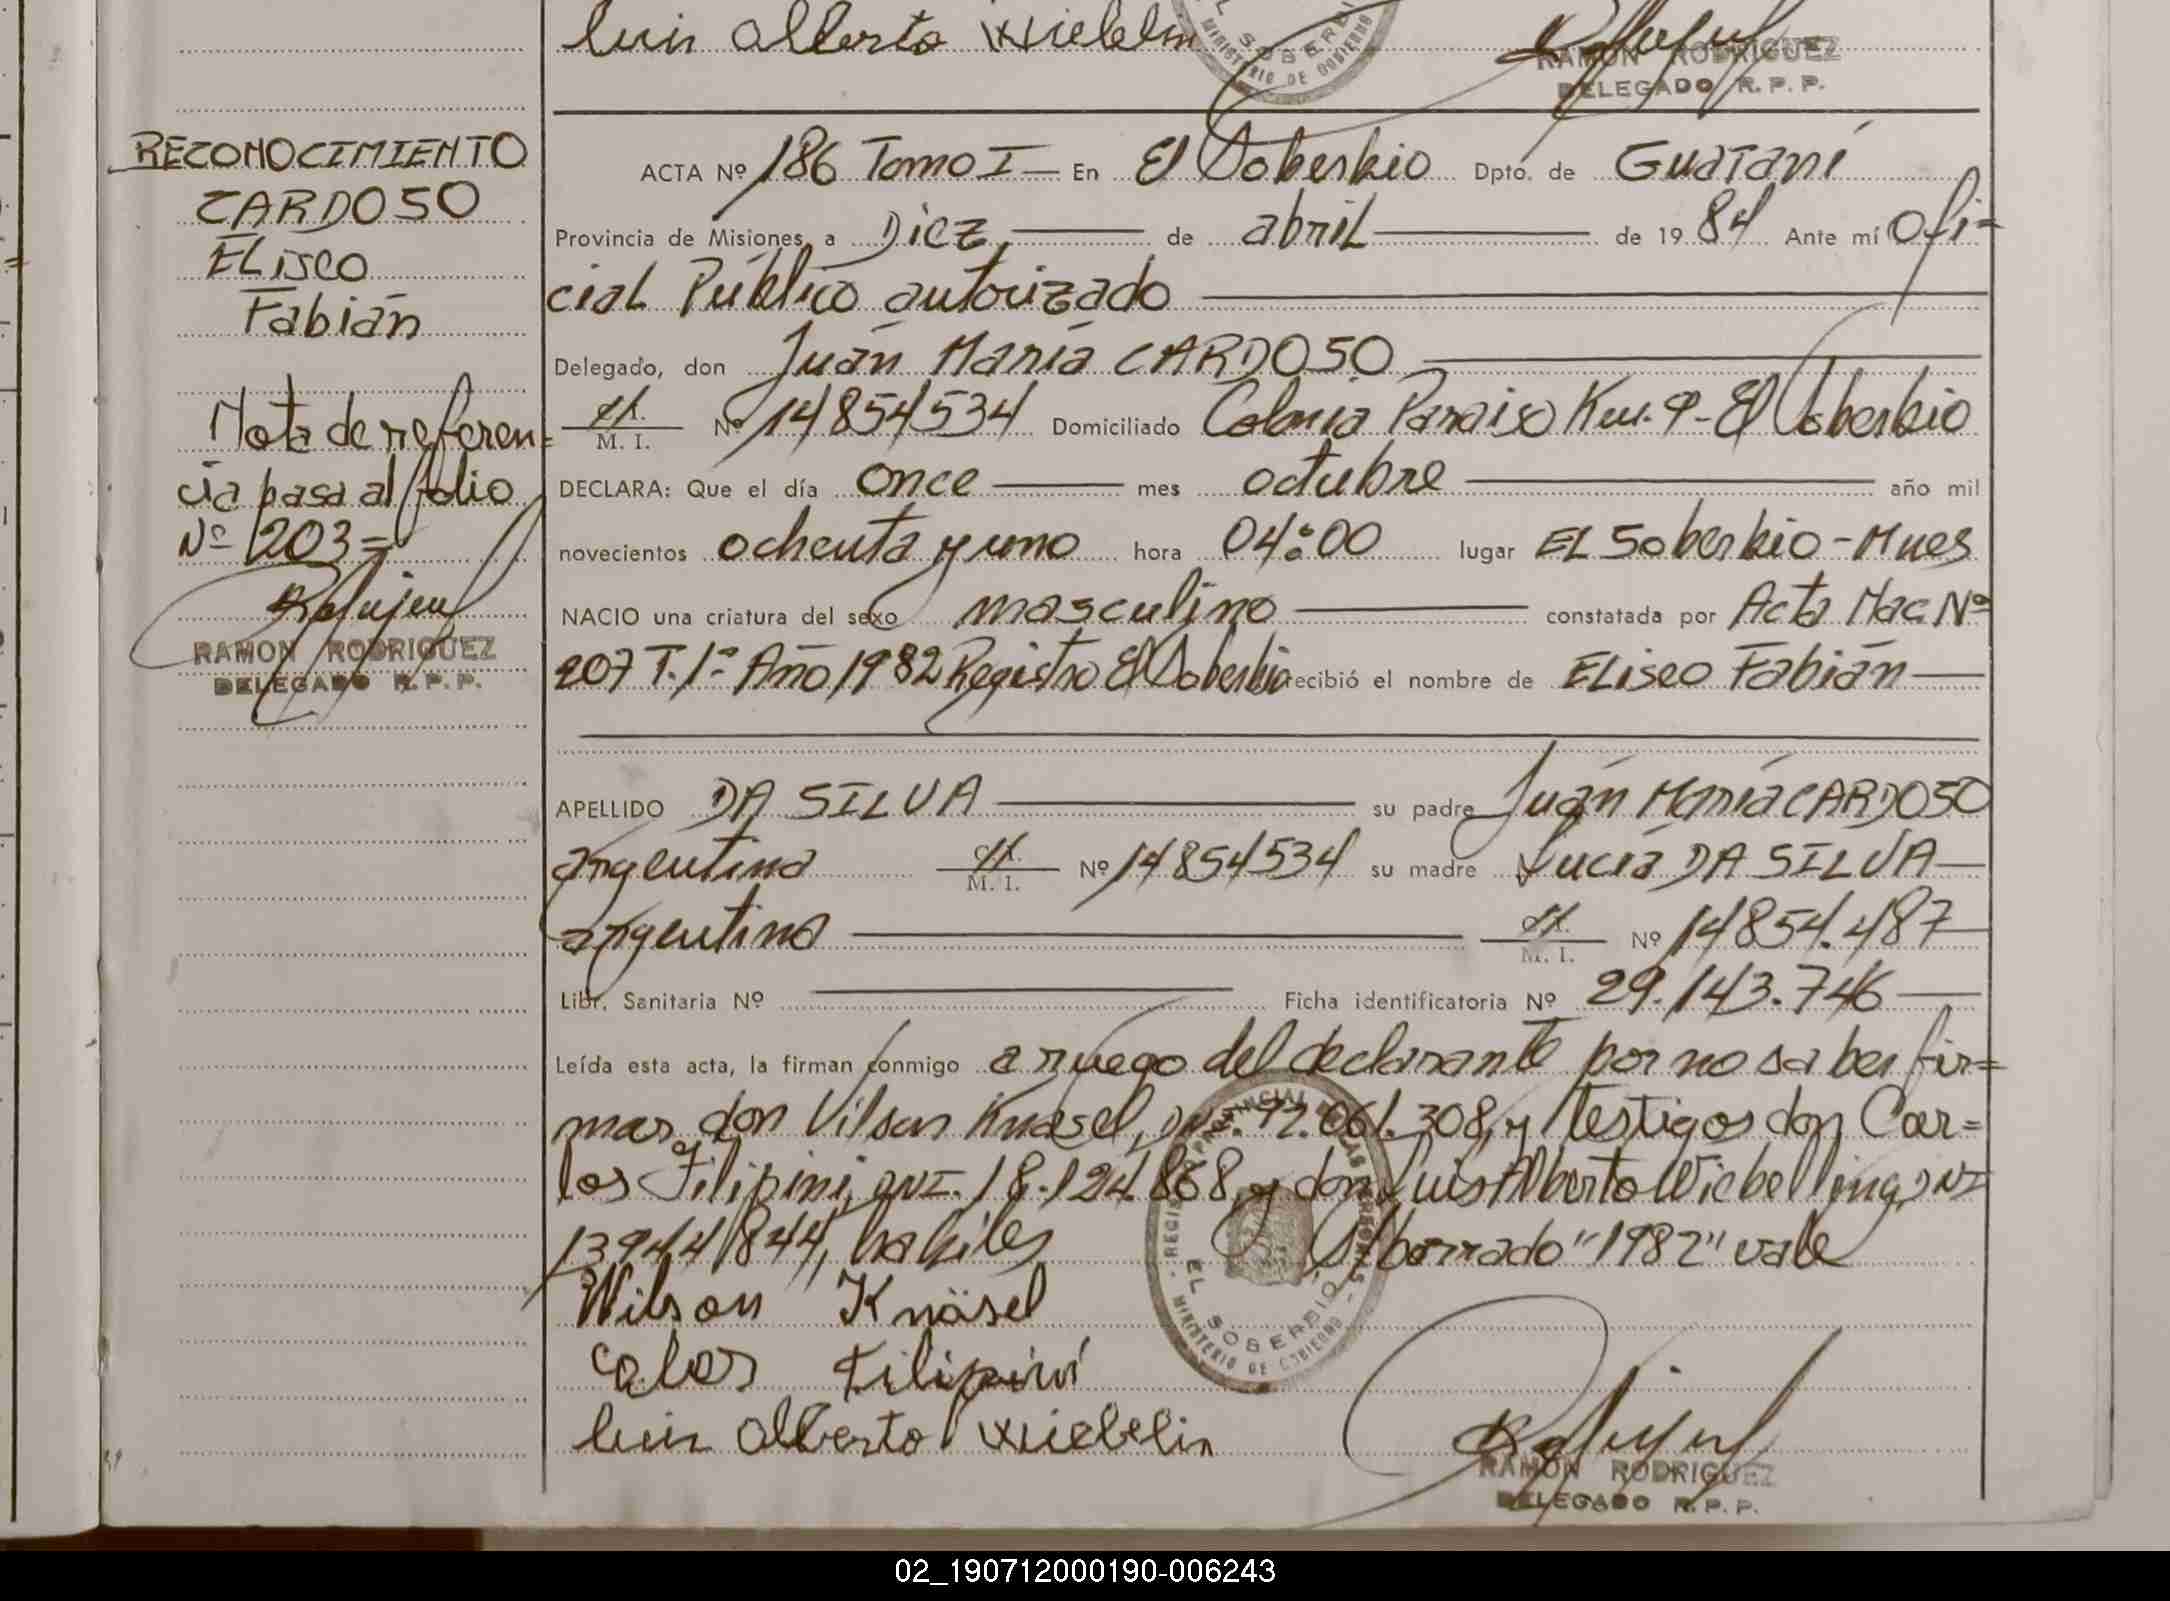 luis alberto Wiebelin
SOBERBIO
MINISTERIO DE GOBIERNO
RAMON RODRIGUEZ
DELEGADO R. P. P.
RECONOCIMIENTO
CARDOSO
ELiseo
Fabián
Nota de referen=
cia pasa al folio
Nº 203=
RAMON RODRIGUEZ
DELEGADO R. P. P.
ACTA Nº 186 Tomo I — En El Soberbio Dpto. de Guaraní
Provincia de Misiones, a Diez, de abril de 1984 Ante mí Ofi=
cial Público autorizado
Delegado, don Juán María CARDOSO
M. I. Nº 14854534 Domiciliado Colonia Paraiso Km. 9 - El Soberbio
DECLARA: Que el día once mes octubre año mil
novecientos ochenta y uno hora 04:00 lugar EL Soberbio - Mnes
NACIO una criatura del sexo masculino constatada por Acta Nac Nº
207 T. 1º Año 1982 Registro El Soberbio recibió el nombre de ELiseo Fabián
APELLIDO DA SILVA su padre Juán María CARDOSO
argentino M. I. Nº 14854534 su madre Lucía DA SILVA
argentina M. I. Nº 14854.487
Libr. Sanitaria Nº Ficha identificatoria Nº 29.143.746
Leída esta acta, la firman conmigo a ruego del declarante por no saber fir=
mar, don Vilson Knasel, DNI. 92.061.308, y testigos don Car=
los Filipini, DNI. 18.124.868, y don Luis Alberto Wiebelling, DNI
13944844, habiles S/borrado "1982" vale
Wilson Knäsel
Calos Filipini
luis alberto Wiebelin
REGISTRO PROVINCIAL DE LAS PERSONAS
EL SOBERBIO
MINISTERIO DE GOBIERNO
RAMON RODRIGUEZ
DELEGADO R. P. P.
02_190712000190-006243